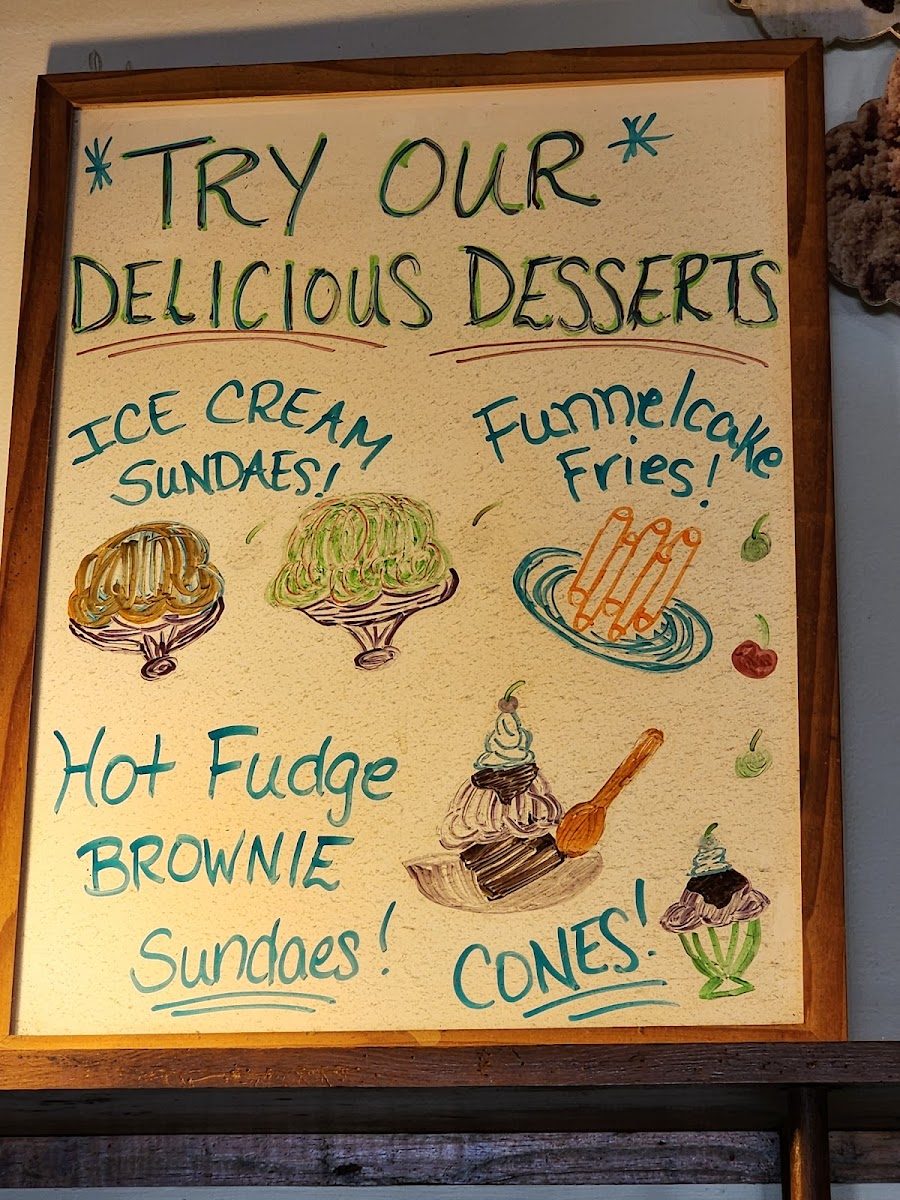 *TRY OUR*
DELICIOUS DESSERTS
ICE CREAM
SUNDAES!
Funnelcake
Fries!
Hot Fudge
BROWNIE
Sundaes!
CONES!